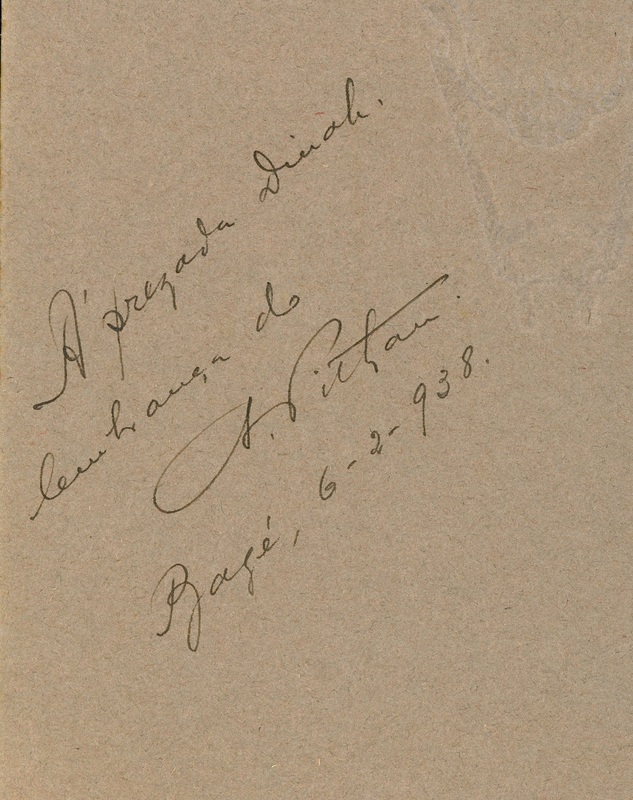 Á prezada Dinah.
lembrança do
A. Pitthan.
Bagé, 6-2-938.